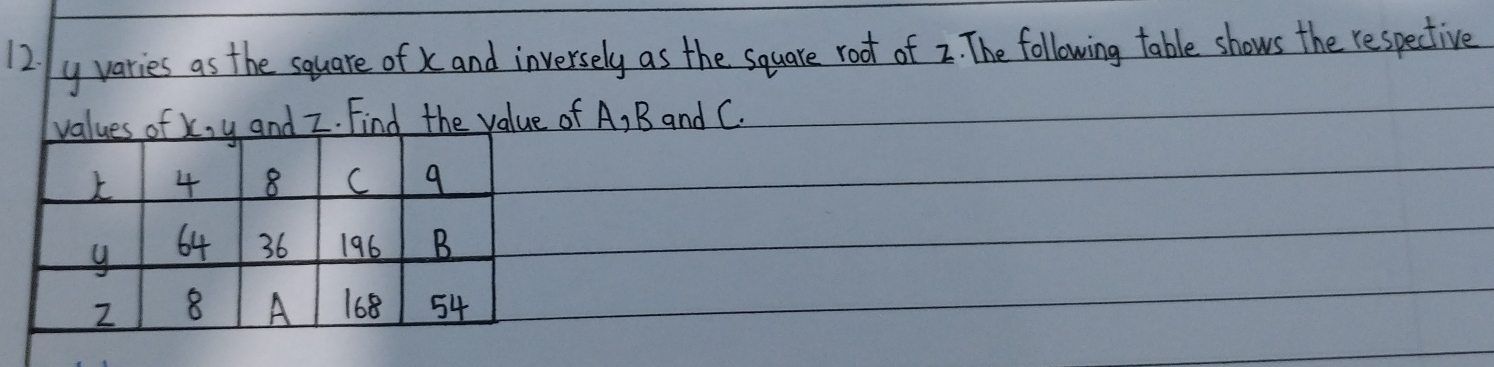 12. y varies as the square of x and inversely as the square root of z. The following table shows the respective
values of x, y and z. Find the value of A, B and C.
x 4 8 C 9
y 64 36 196 B
z 8 A 168 54